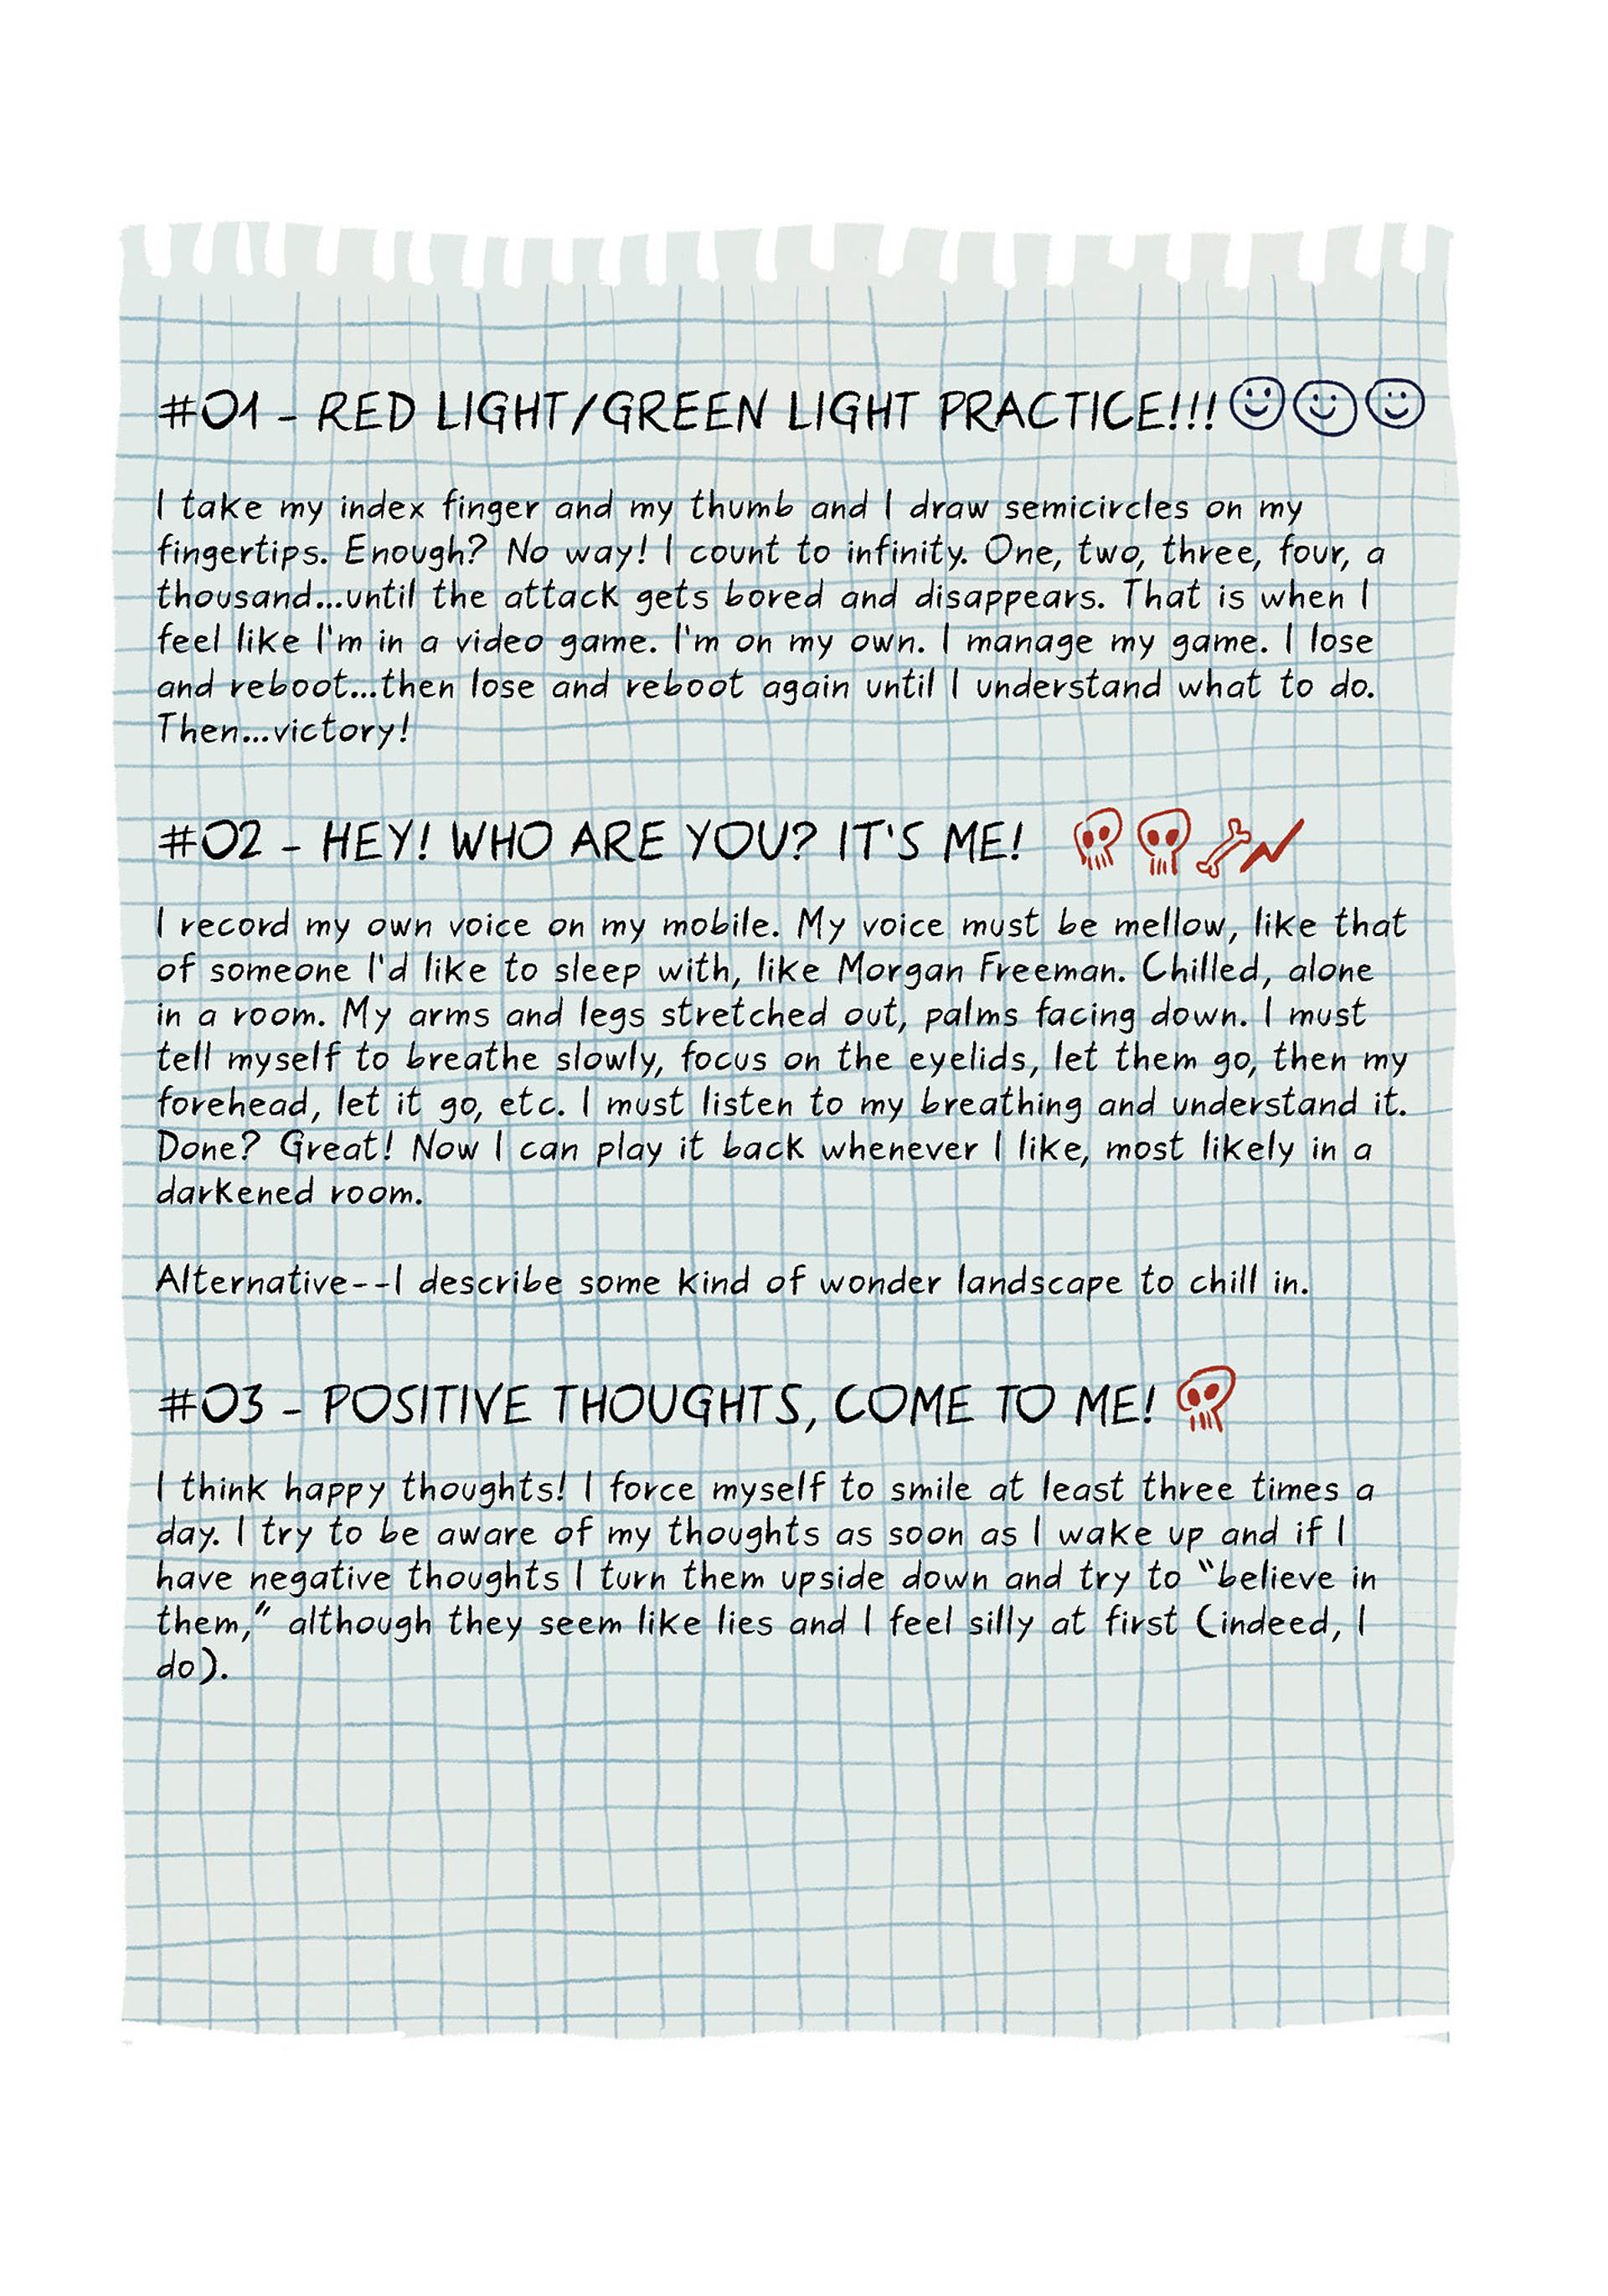 #01 - RED LIGHT/GREEN LIGHT PRACTICE!!!
I take my index finger and my thumb and I draw semicircles on my
fingertips. Enough? No way! I count to infinity. One, two, three, four, a
thousand...until the attack gets bored and disappears. That is when I
feel like I'm in a video game. I'm on my own. I manage my game. I lose
and reboot...then lose and reboot again until I understand what to do.
Then...victory!
#02 - HEY! WHO ARE YOU? IT'S ME!
I record my own voice on my mobile. My voice must be mellow, like that
of someone I'd like to sleep with, like Morgan Freeman. Chilled, alone
in a room. My arms and legs stretched out, palms facing down. I must
tell myself to breathe slowly, focus on the eyelids, let them go, then my
forehead, let it go, etc. I must listen to my breathing and understand it.
Done? Great! Now I can play it back whenever I like, most likely in a
darkened room.
Alternative--I describe some kind of wonder landscape to chill in.
#03 - POSITIVE THOUGHTS, COME TO ME!
I think happy thoughts! I force myself to smile at least three times a
day. I try to be aware of my thoughts as soon as I wake up and if I
have negative thoughts I turn them upside down and try to “believe in
them,” although they seem like lies and I feel silly at first (indeed, I
do).